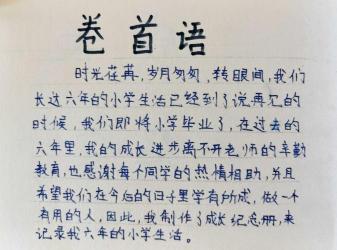 卷首语
时光荏苒,岁月匆匆,转眼间,我们
长达六年的小学生活已经到了说再见的
时候,我们即将小学毕业了,在过去的
六年里,我的成长进步离不开老师的辛勤
教育,也感谢每个同学的热情相助,并且
希望我们在今后的日子里学有所成,做一个
有用的人,因此,我制作了成长纪念册,来
记录我六年的小学生活。